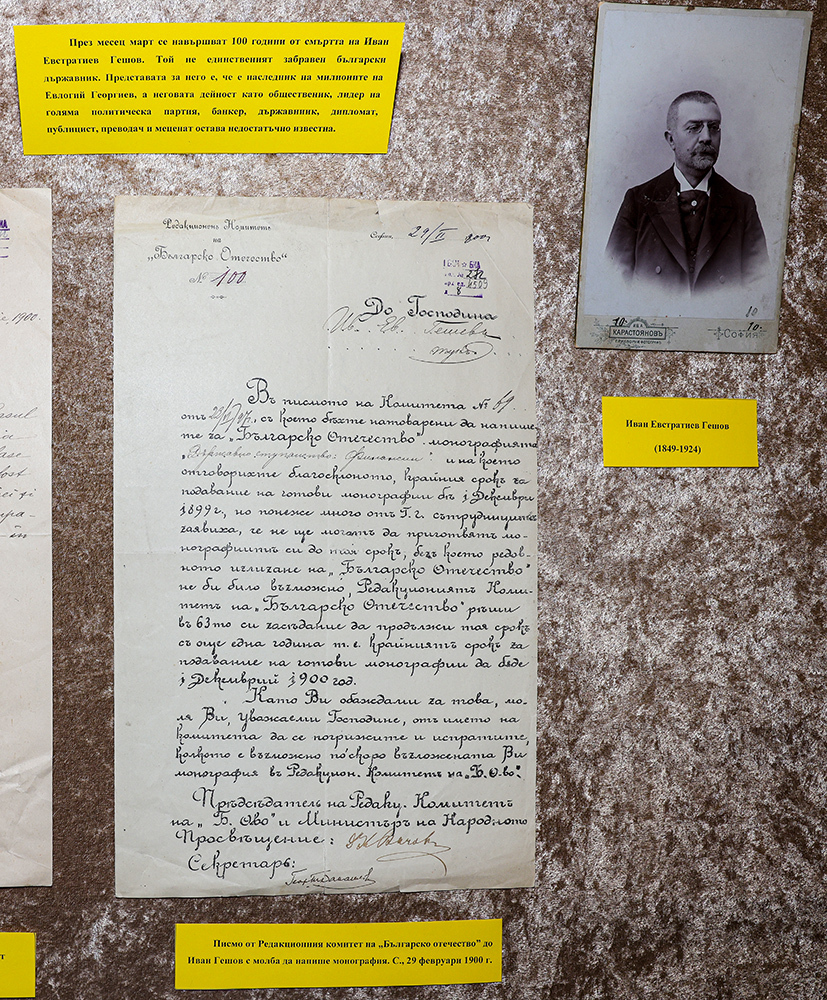 През месец март се навършват 100 години от смъртта на Иван
Евстратиев Гешов. Той не единственият забравен български
държавник. Представата за него е, че е наследник на милионите на
Евлогий Георгиев, а неговата дейност като общественик, лидер на
голяма политическа партия, банкер, държавник, дипломат,
публицист, преводач и меценат остава недостатъчно известна.
Редакционенъ Комитетъ
на
„Българско Отечество“
№ 100.
София, 29/II 900 г.
До Господина
Ив. Ев. Гешовъ
тукъ.
Въ писмото на Комитета № 69
отъ с което бѣхте натоварени да напише-
те за „Българско Отечество“ монографията
„Държавно стопанство: Финансии“ и на което
отговорихте благосклонно, крайния срокъ за
подавание на готови монографии бѣ 1 Декемврий
1899 г., но понеже много отъ Г. г. сътрудницитѣ
заявиха, че не ще могатъ да приготвятъ мо-
нографиитѣ си до тоя срокъ, безъ което редов-
ното излизане на „Българско Отечество“
не би било възможно, Редакциониятъ Коми-
тетъ на „Българско Отечество“ рѣши
въ 63то си заседание да продължи тоя срокъ
съ още една година т. е. крайниятъ срокъ за
подавание на готови монографии да бѫде
1 Декемврий 1900 год.
Като Ви обаждами за това, мо-
ля Ви, уважаеми Господине, отъ името на
комитета да се погрижите и испратите,
колкото е възможно по́скоро възложената Ви
монография въ Редакцион. Комитетъ на „Б. О-во“.
Прѣдседатель на Редакц. Комитетъ
на „Б. О-во“ и Министъръ на Народното
Просвѣщение:
Секретарь:
КАРАСТОЯНОВЪ
СОФИЯ
10.
10
10.
Иван Евстратиев Гешов
(1849-1924)
Писмо от Редакционния комитет на „Българско отечество” до
Иван Гешов с молба да напише монография. С., 29 февруари 1900 г.
1900.